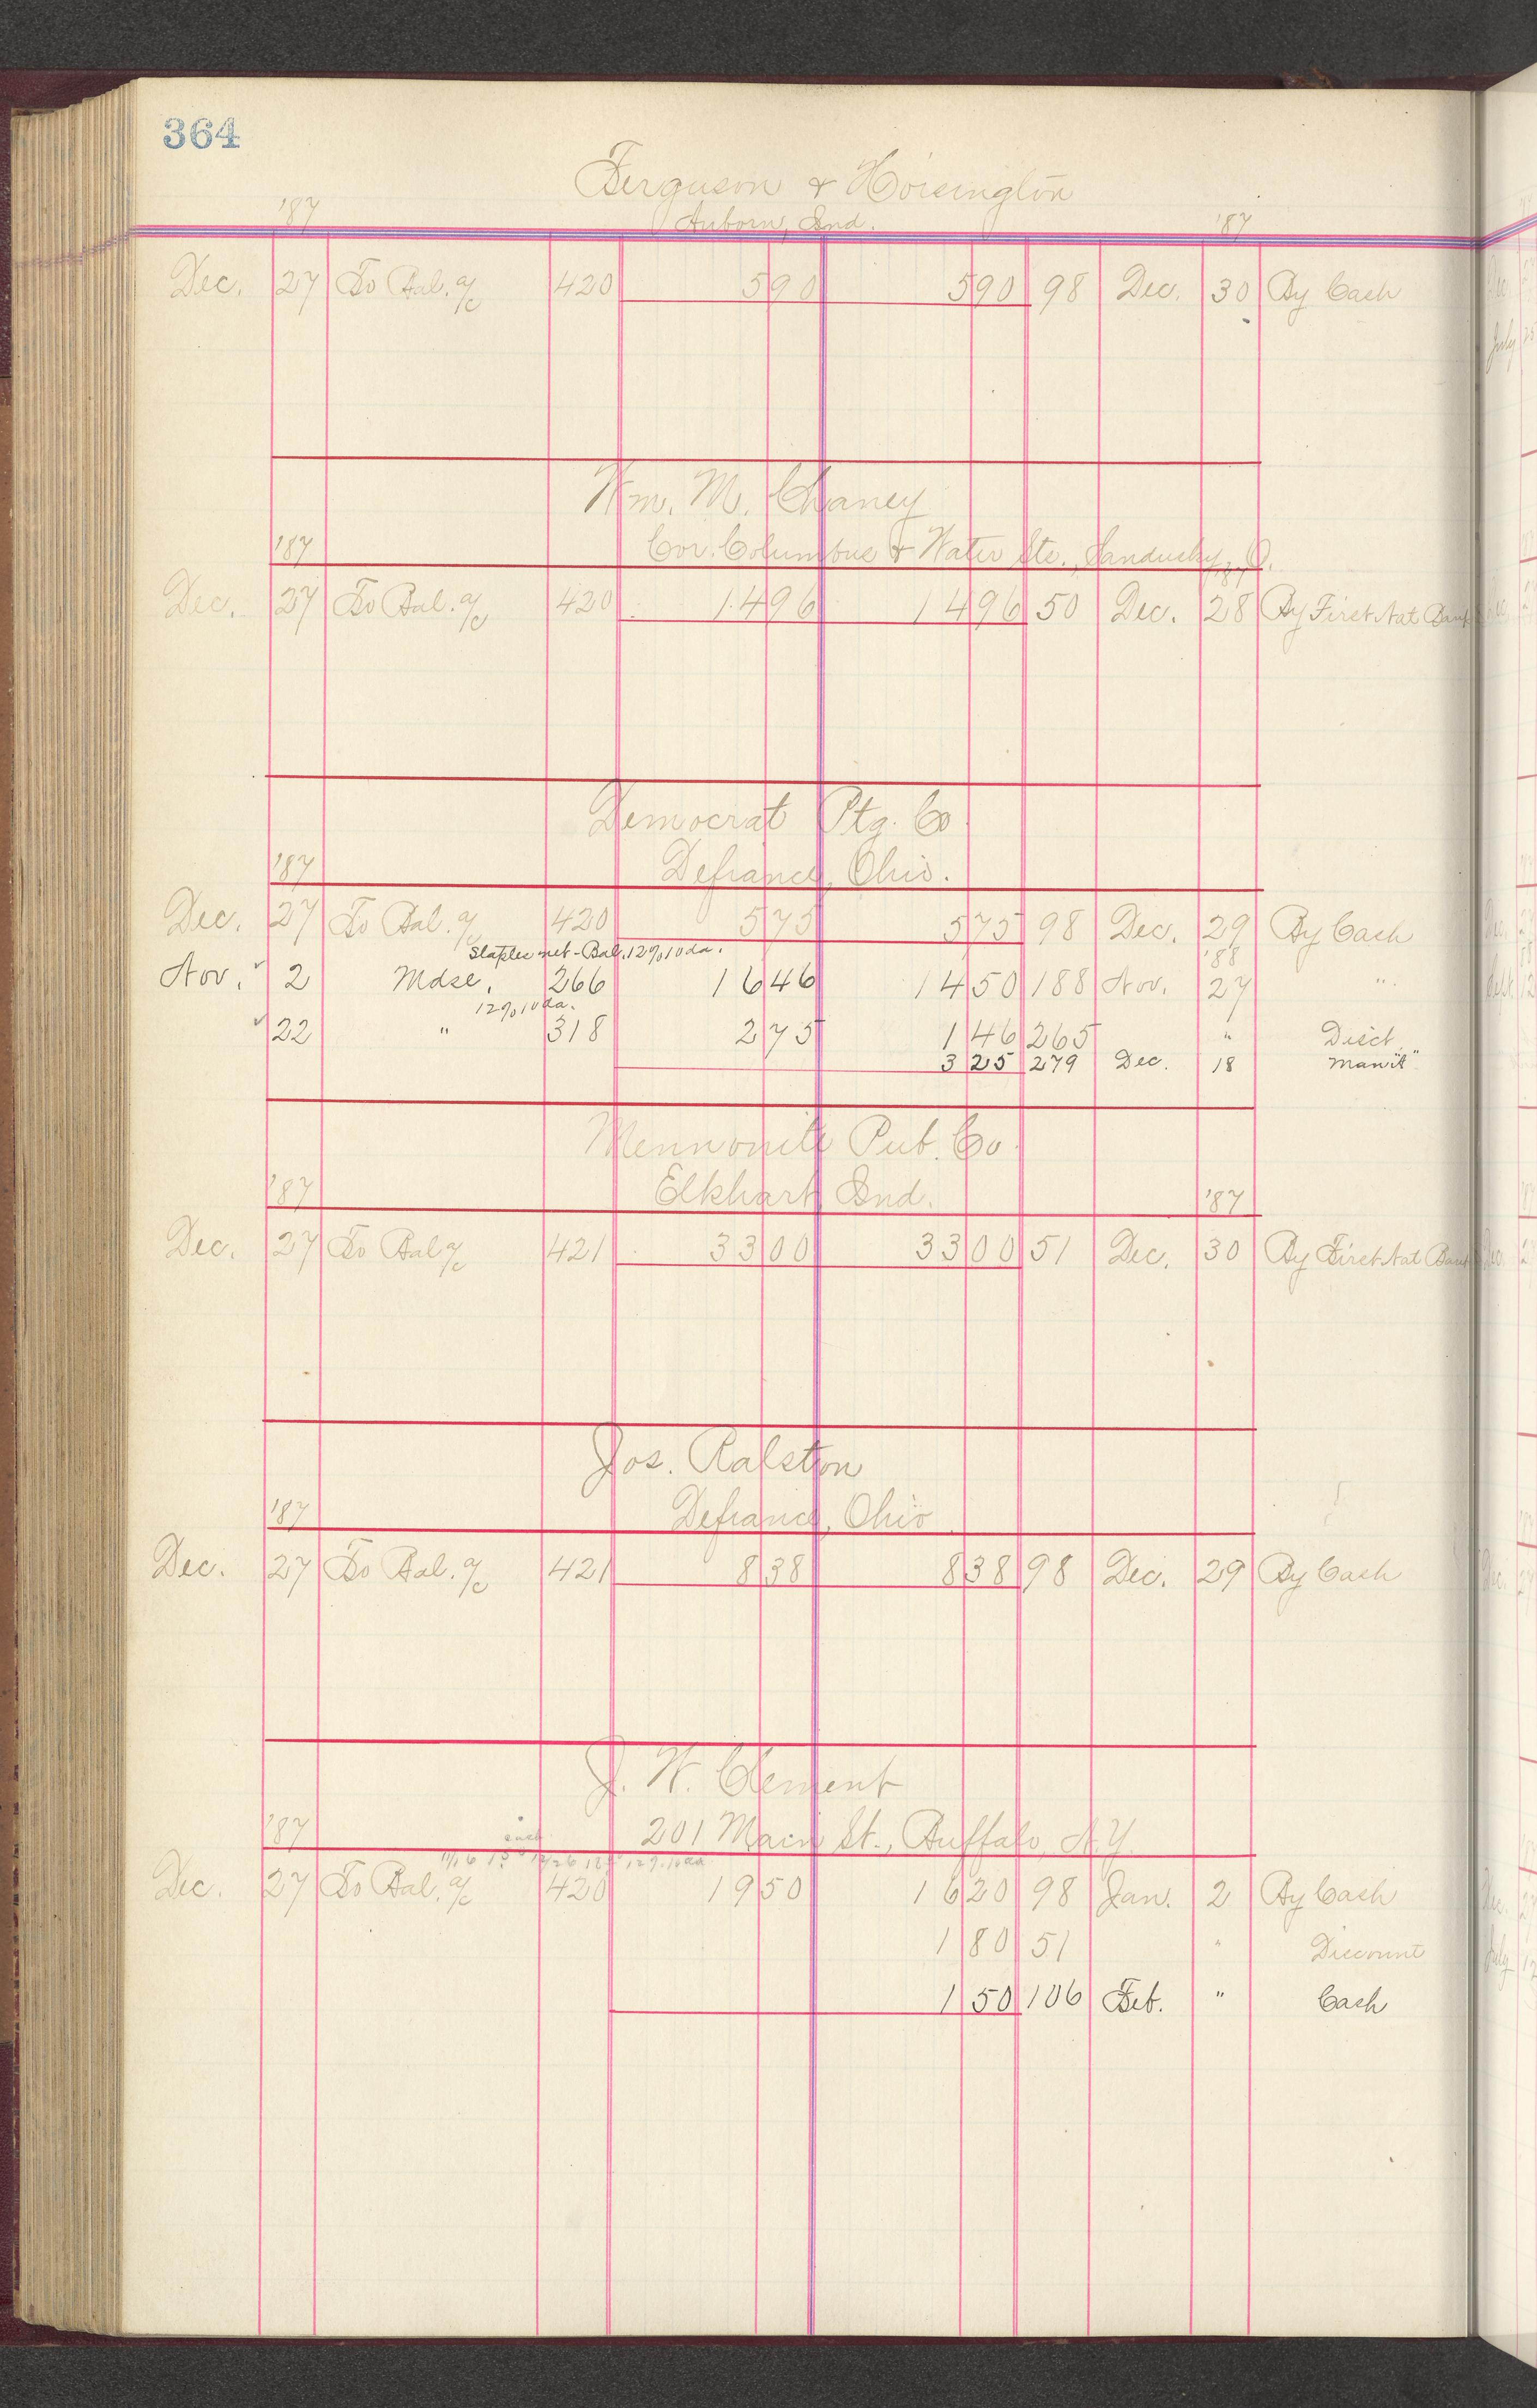 364
Ferguson & Hoisington
'87 Auborn, Ind. '87
Dec. 27 To Bal. a/c 420 590 590 98 Dec. 30 By Cash
Wm. M. Chaney
'87 Cor. Columbus & Water Sts., Sandusky, O.
'87
Dec. 27 To Bal. a/c 420 1496 1496 50 Dec. 28 By First Nat Bank
Democrat Ptg. Co
'87 Defiance, Ohio.
Dec. 27 To Bal. a/c 420 575 575 98 Dec. 29 By Cash
Staples net - Bal. 12% 10 da. '88
Nov. 2 Mdse. 266 1646 1450 188 Nov. 27 "
12% 10 da.
22 " 318 275 146 265 " Disct.
325 279 Dec. 18 Man'il"
Mennonite Pub. Co.
'87 Elkhart Ind. '87
Dec. 27 To Bal a/c 421 3300 3300 51 Dec. 30 By First Nat Bank
Jos. Ralston
'87 Defiance, Ohio
Dec. 27 To Bal. a/c 421 838 838 98 Dec. 29 By Cash
J. W. Clement
'87 201 Main St., Buffalo, N.Y.
12% 10 da
Dec. 27 To Bal. a/c 420 1950 1620 98 Jan. 2 By Cash
180 51 " Discount
150 106 Feb. " Cash